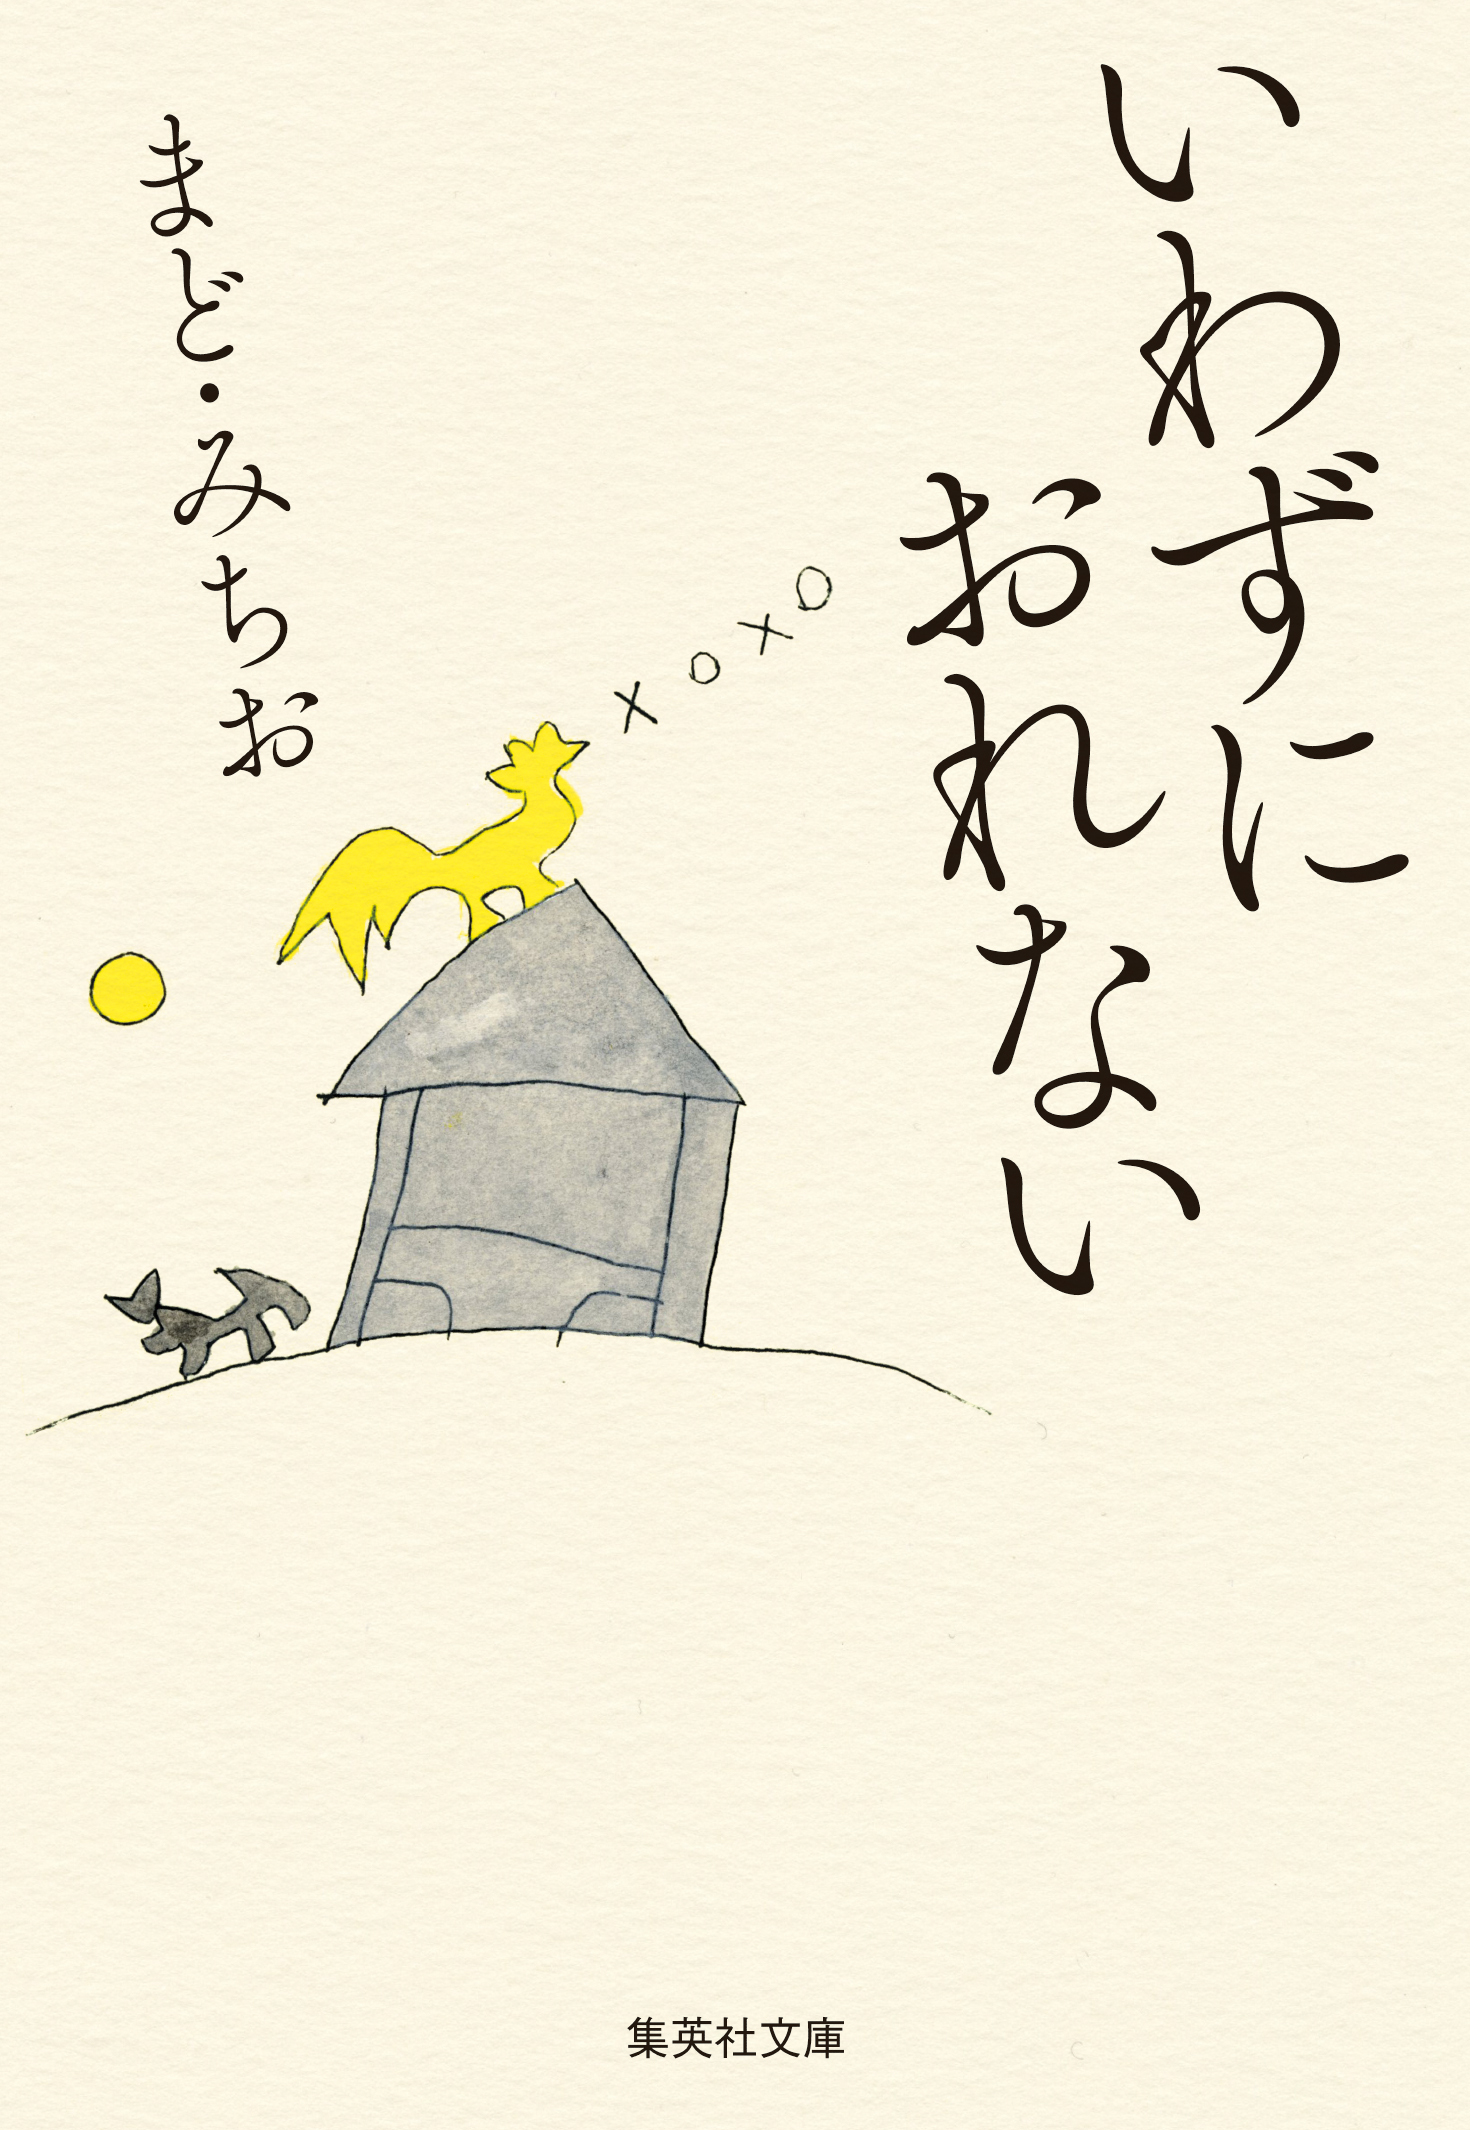 いわずに
おれない
まど・みちお
集英社文庫